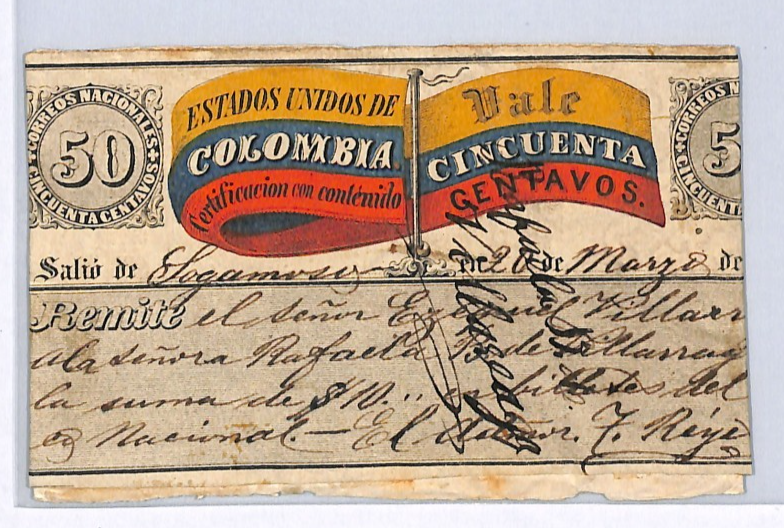 CORREOS NACIONALES
50
CINCUENTA CENTAVOS
ESTADOS UNIDOS DE
COLOMBIA
Certificacion con contenido
Vale
CINCUENTA
CENTAVOS.
CORREOS N
5
CINCUENT
Salió de Sogamoso en 20 de Marzo de
Remite el señor Ezequiel Villarr
a la señora Rafaela de Villarrag
la suma de $10.. en billetes del
co Nacional.— El F. Reye